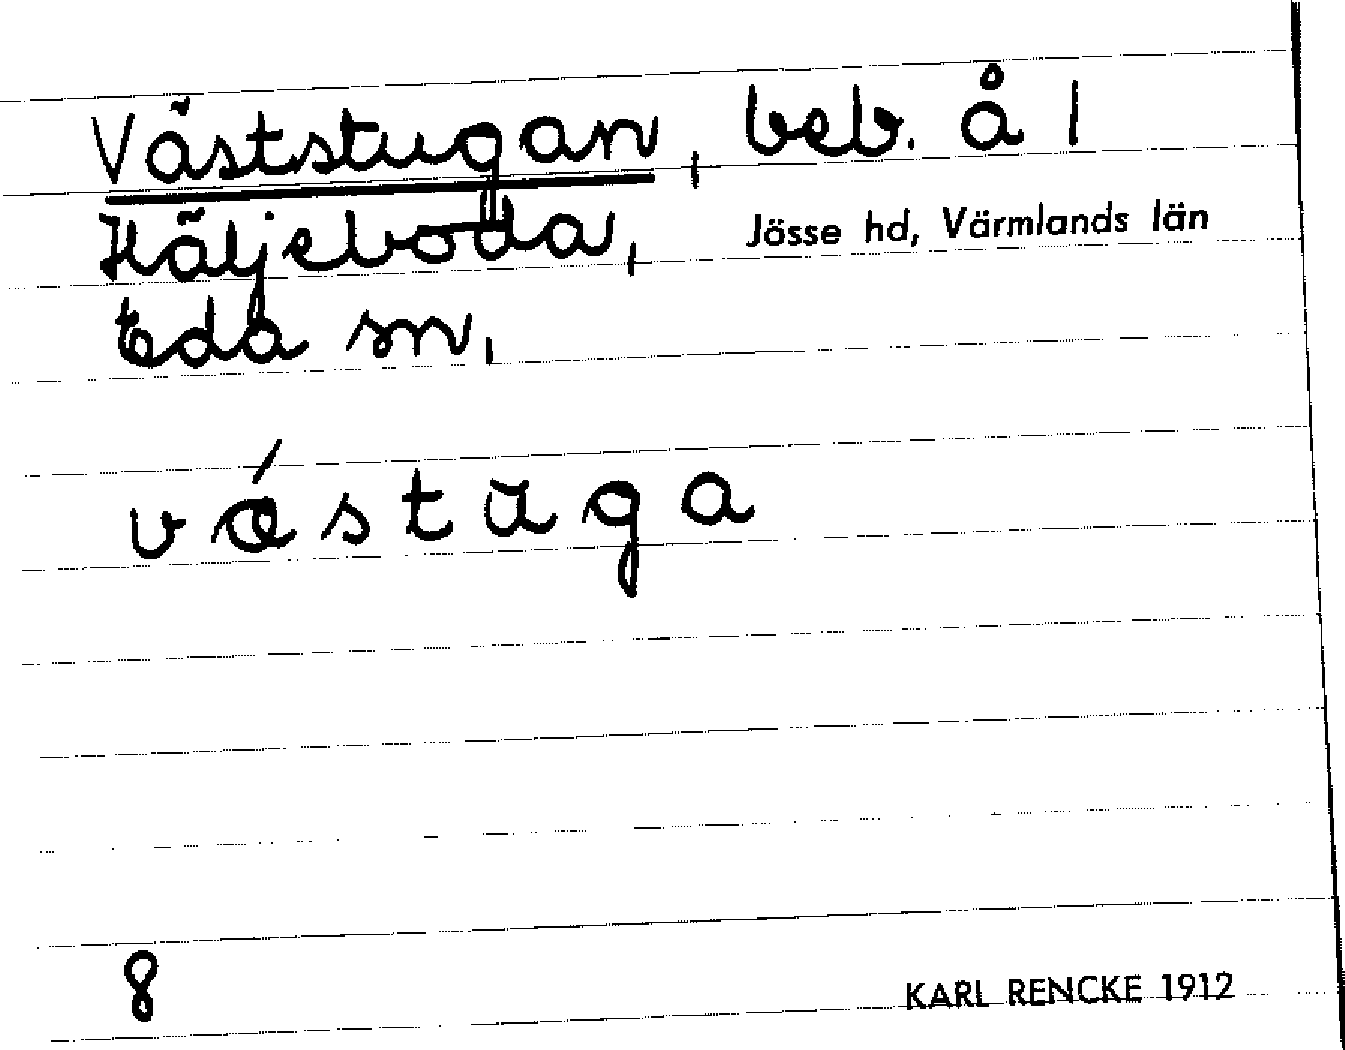 Väststugan, beb. å 1
Häljeboda,
Jösse hd, Värmlands län
Eda sn,
vǽstuga
8
KARL RENCKE 1912